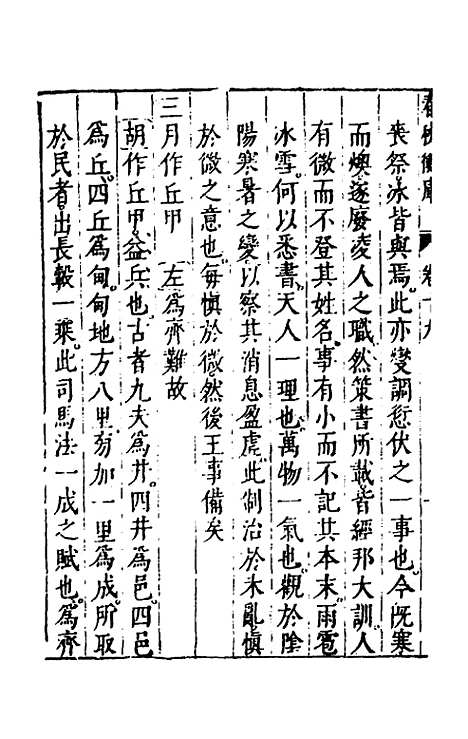 春秋衡庫 卷十九
喪祭冰皆與焉此亦變調愆伏之一事也今既寒
而燠遂廢凌人之職然策書所載皆經邦大訓人
有微而不登其姓名事有小而不記其本末雨雹
冰雪何以悉書天人一理也萬物一氣也觀於陰
陽寒暑之變以察其消息盈虛此制治於未亂慎
於微之意也每慎於微然後王事備矣
三月作丘甲 左爲齊難故
胡作丘甲益兵也古者九夫爲井四井爲邑四邑
爲丘四丘爲甸甸地方八里旁加一里爲成所取
於民者出長轂一乘此司馬法一成之賦也爲齊